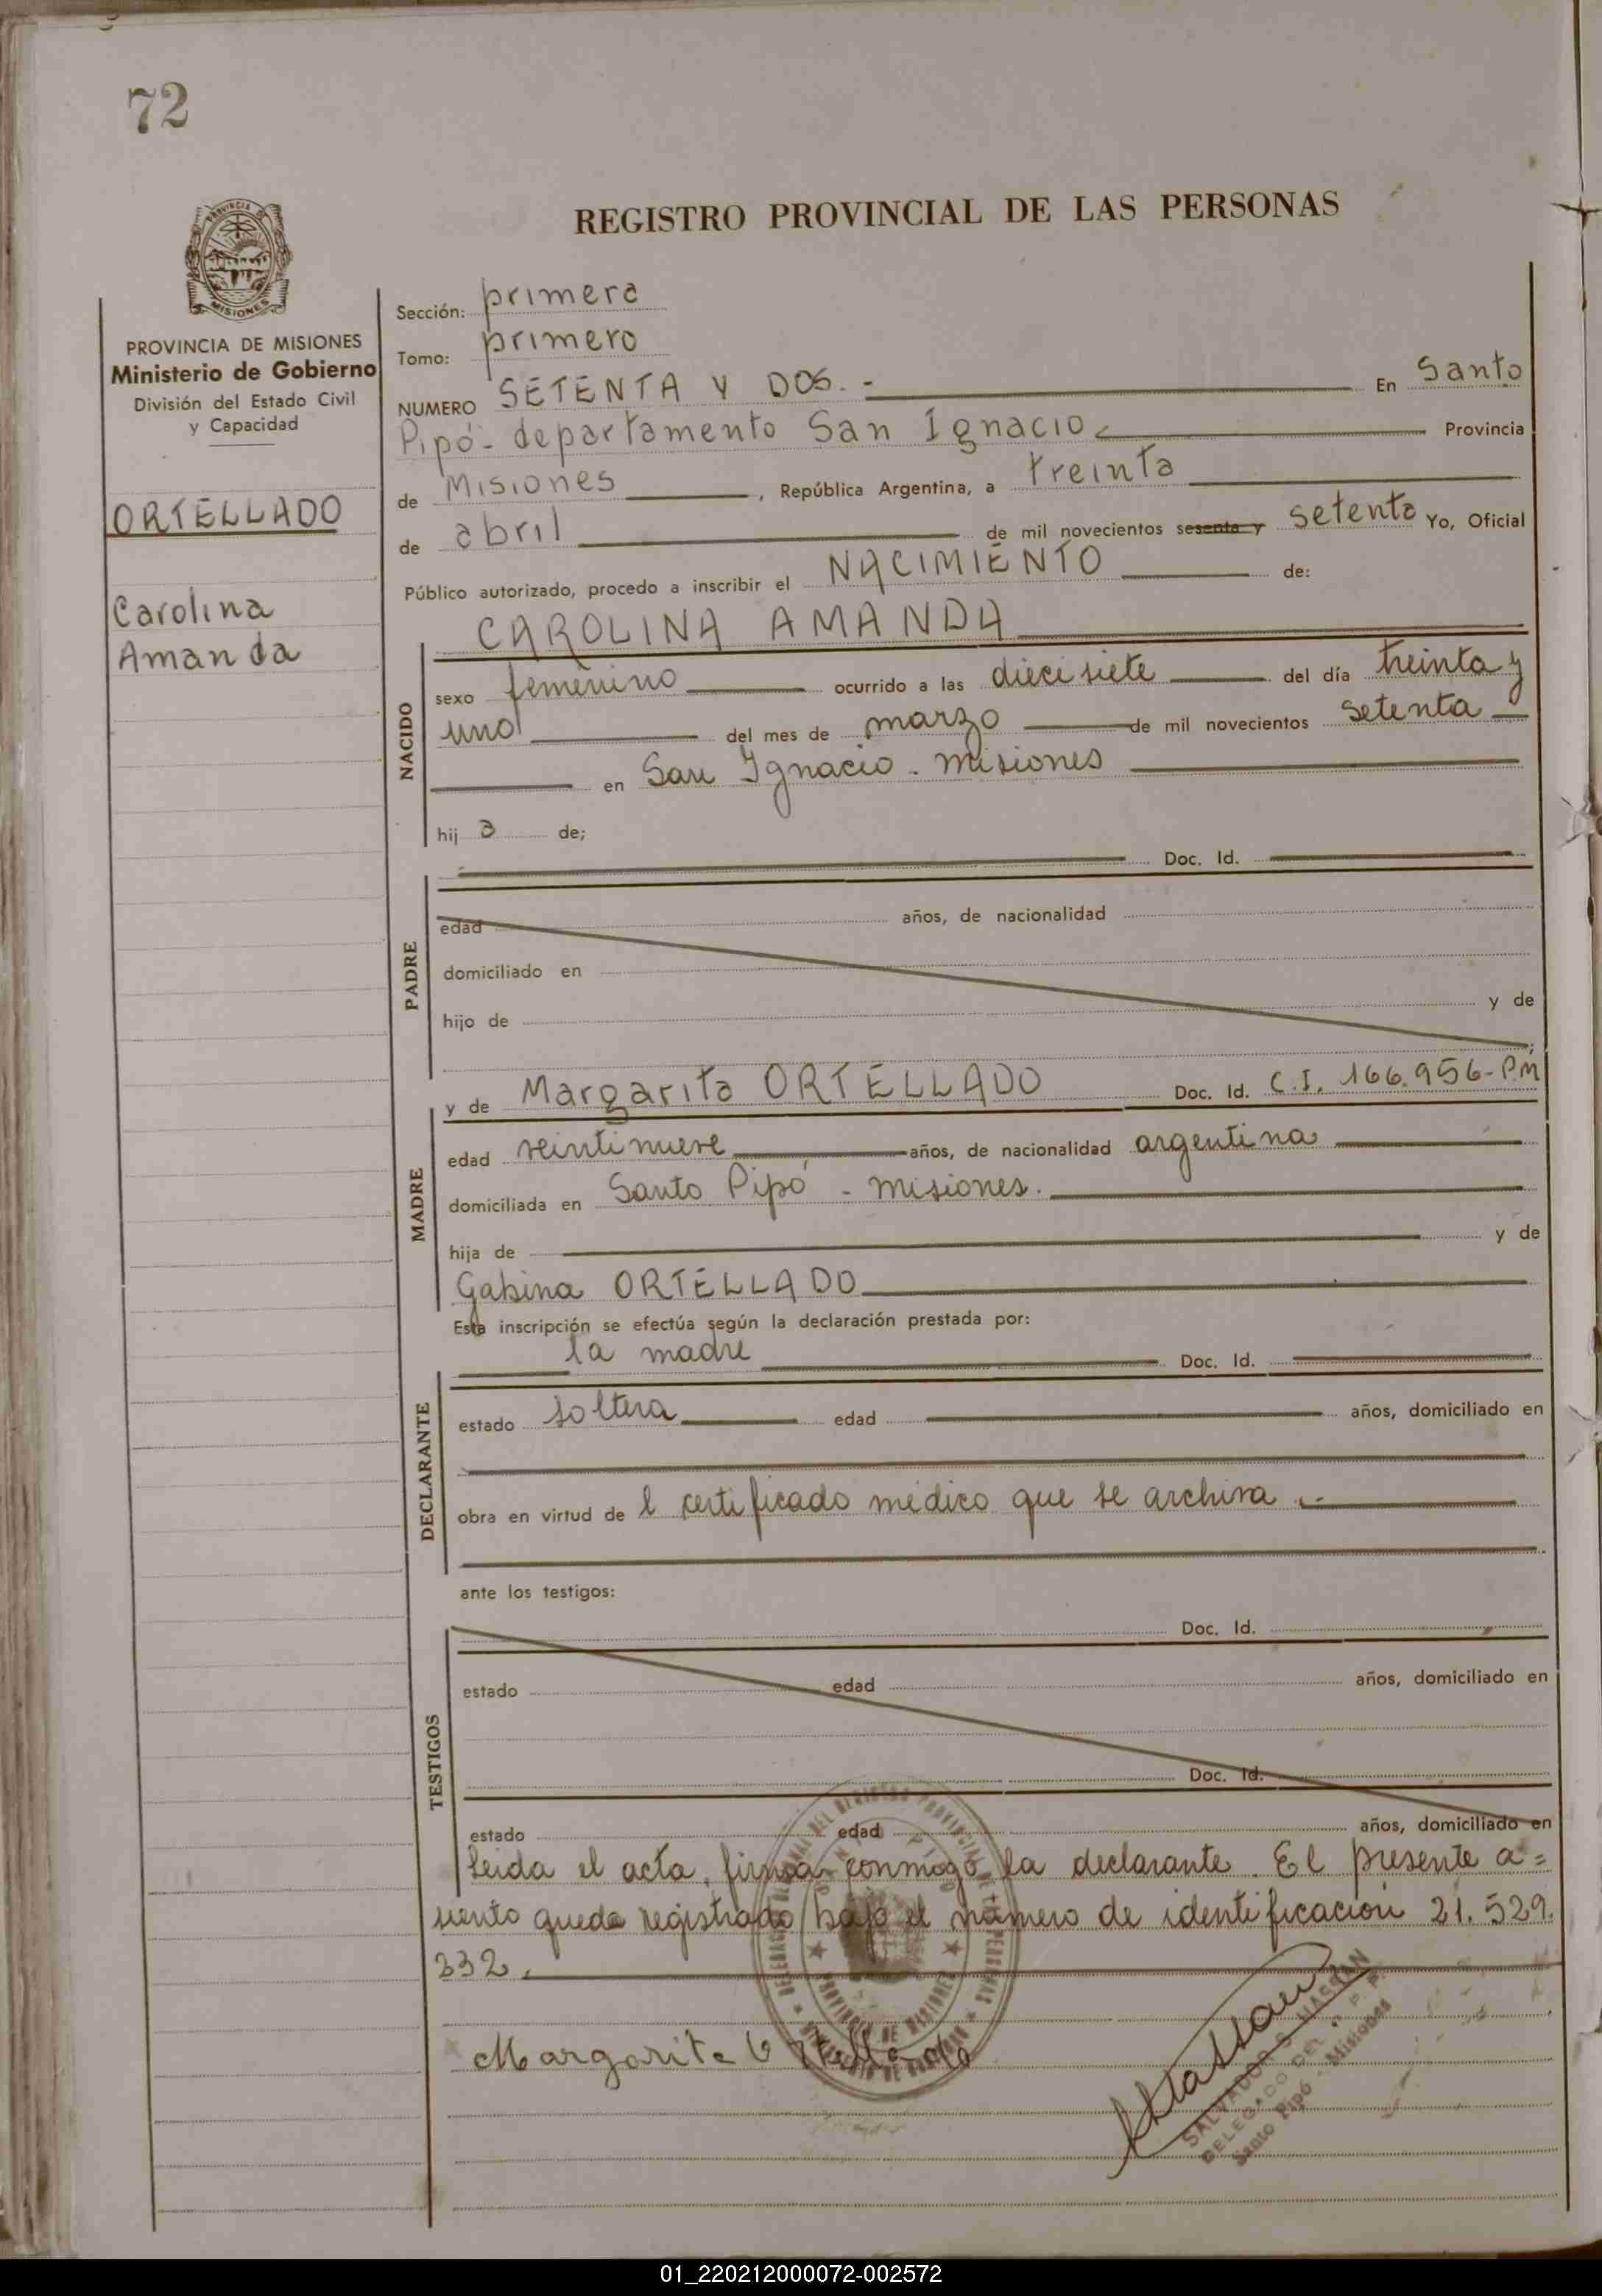 72
REGISTRO PROVINCIAL DE LAS PERSONAS
PROVINCIA DE MISIONES
Ministerio de Gobierno
División del Estado Civil
y Capacidad
ORTELLADO
Carolina
Amanda
Sección: primera
Tomo: primero
NUMERO SETENTA Y DOS.- En Santo
Pipó- departamento San Ignacio Provincia
de Misiones, República Argentina, a treinta
de abril de mil novecientos sesenta y setenta Yo, Oficial
Público autorizado, procedo a inscribir el NACIMIENTO de:
CAROLINA AMANDA
NACIDO
sexo femenino ocurrido a las diecisiete del día treinta y
uno del mes de marzo de mil novecientos setenta
en San Ignacio - misiones
hij a de;
Doc. Id.
PADRE
edad años, de nacionalidad
domiciliado en
hijo de y de
MADRE
y de Margarita ORTELLADO Doc. Id. C.I. 166.956-P.M
edad veintinueve años, de nacionalidad argentina
domiciliada en Santo Pipó - misiones.
hija de y de
Gabina ORTELLADO
Esta inscripción se efectúa según la declaración prestada por:
DECLARANTE
la madre Doc. Id.
estado soltera edad años, domiciliado en
obra en virtud de l certificado médico que se archiva .-
ante los testigos:
TESTIGOS
Doc. Id.
estado edad años, domiciliado en
Doc. Id.
estado edad años, domiciliado en
Leida el acta, firma conmigo la declarante. El presente a=
siento queda registrado bajo el número de identificación 21.529.
332.
Margarita Ortellado
SALVADOR S. HASSAN
DELEGADO DEL R. P. P.
Santo Pipó - Misiones
01_220212000072-002572